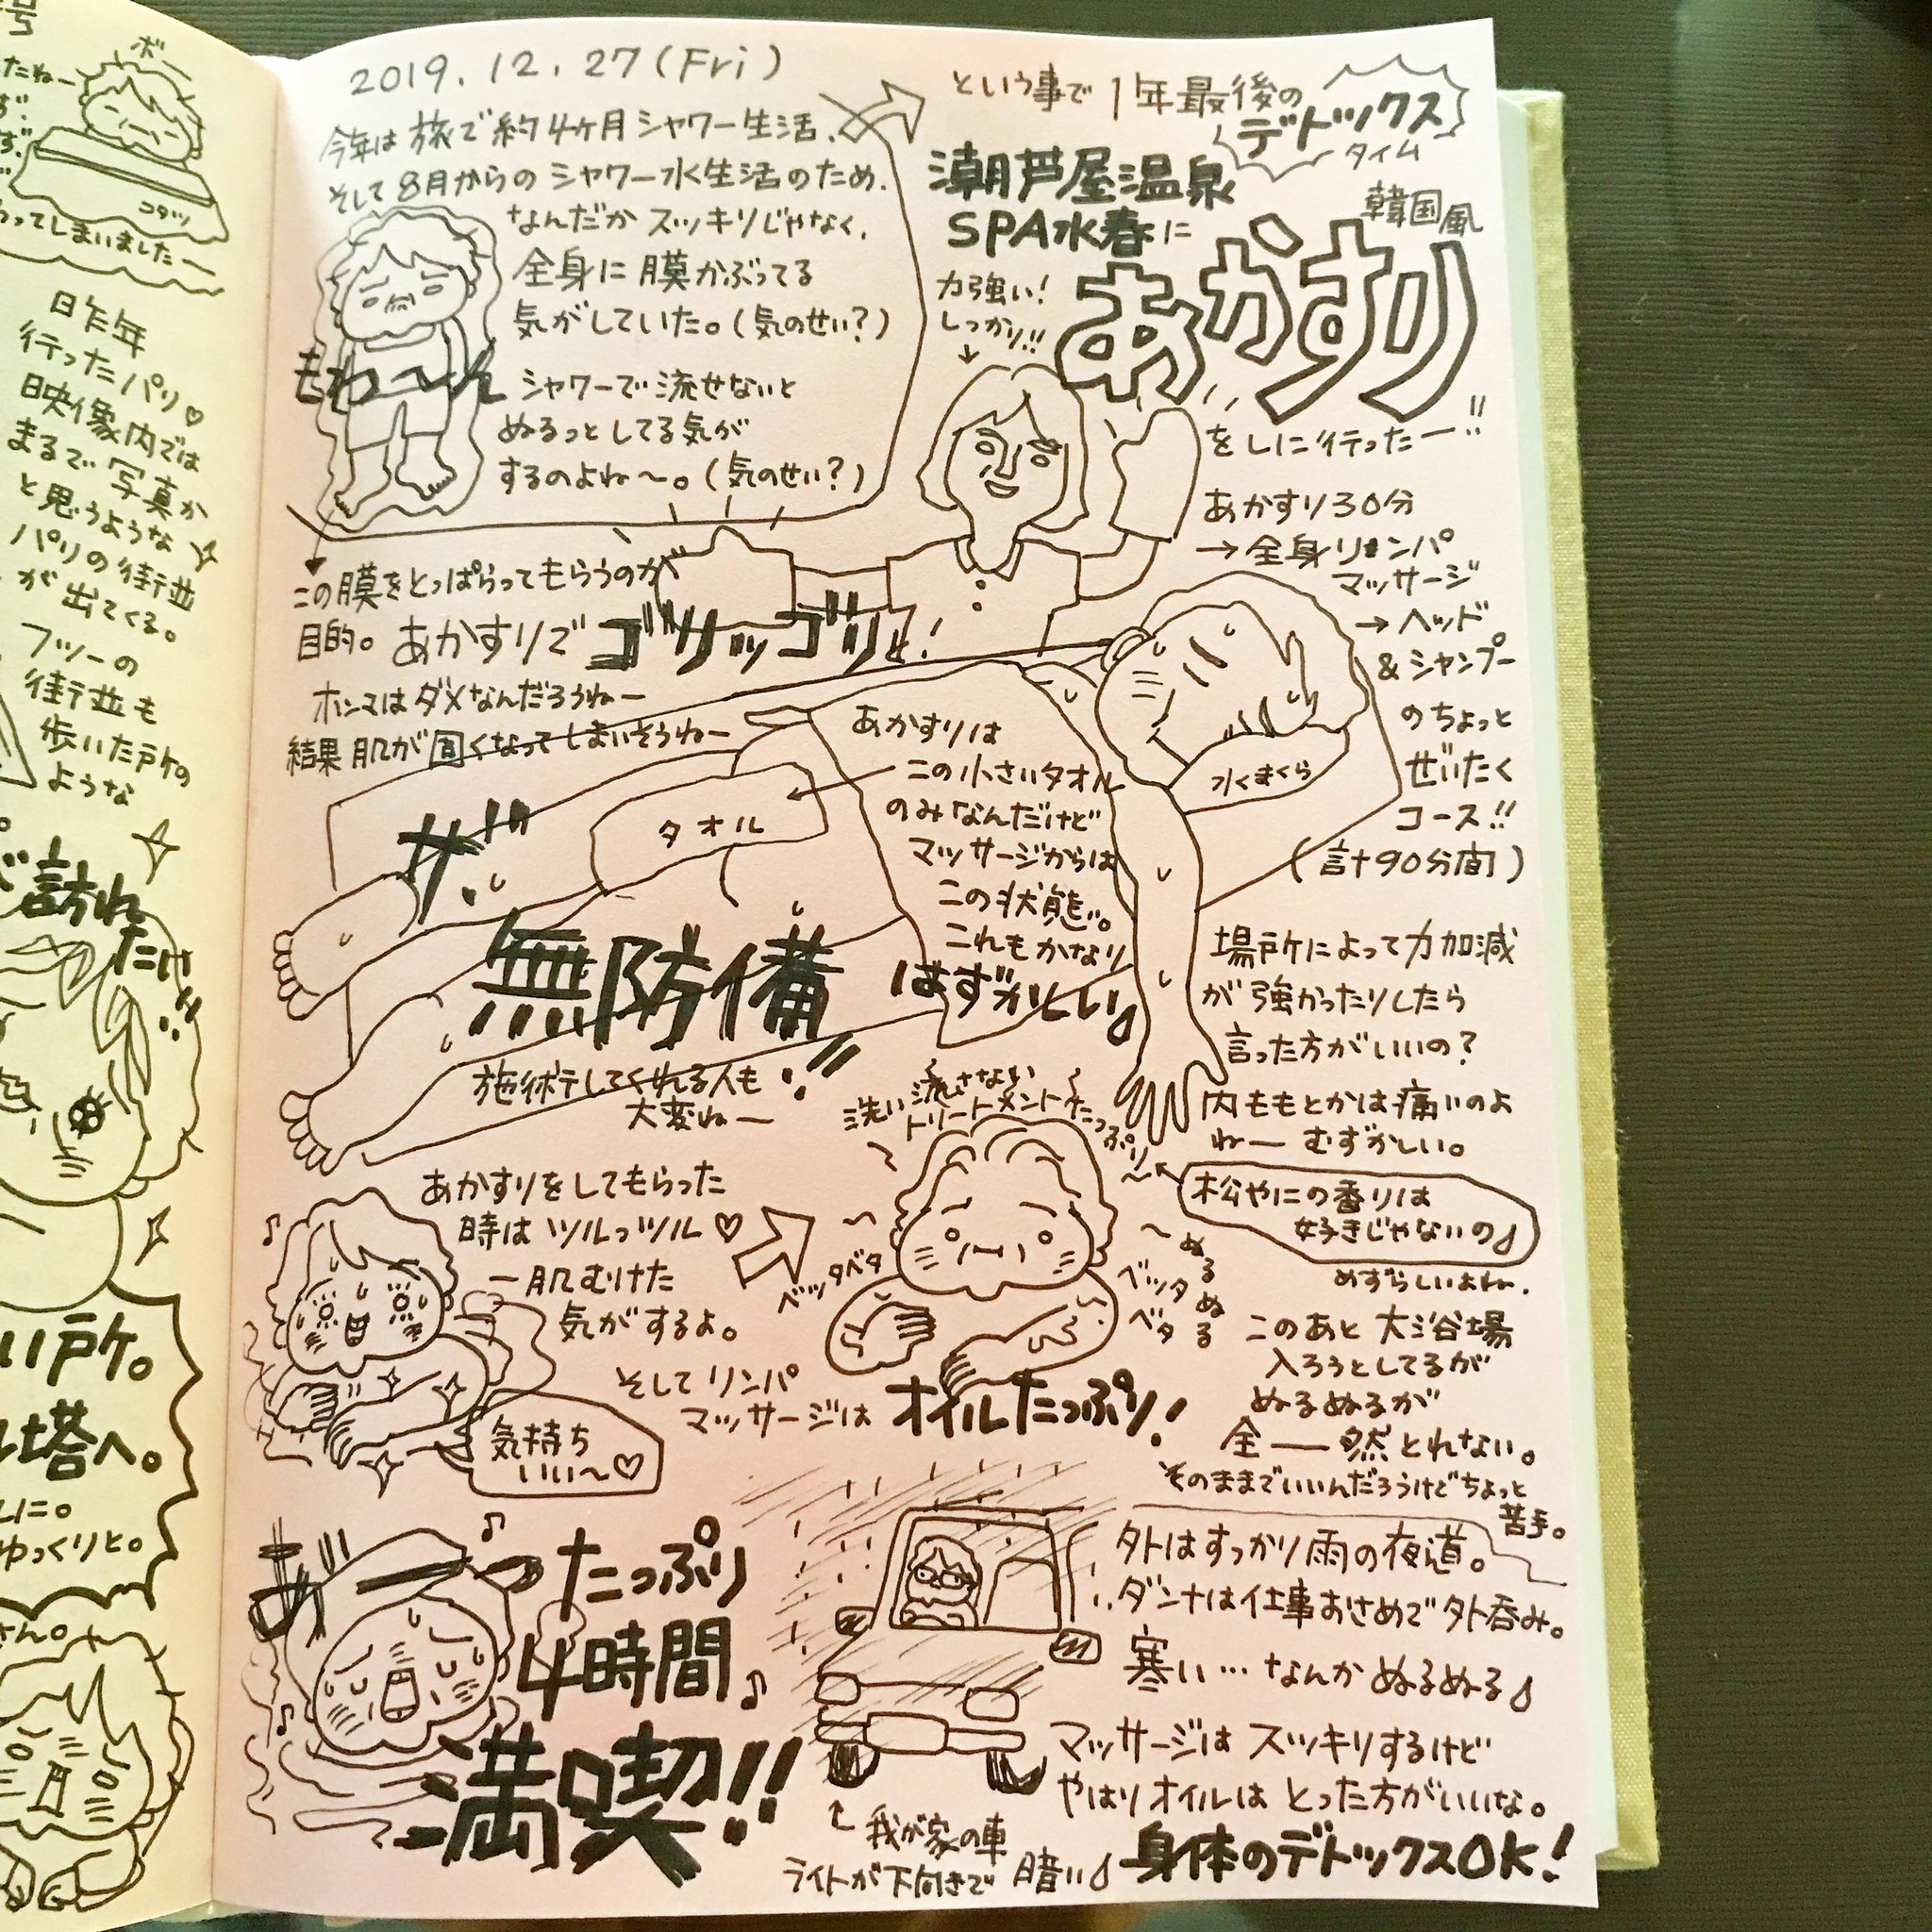 号
たねー
ボー
コタツ
わってしまいましたー
昨年
行ったパリ♡
映像内では
まるで写真か
と思うような
パリの街並
が出てくる。
フツーの
街並も
歩いた所の
ような
訪れ
たけ
い所。
塔へ。
しに。
ゆっくりと。
さん。
2019.12.27(Fri)
今年は旅で約4ヶ月シャワー生活、
そして8月からのシャワー水生活のため、
なんだかスッキリじゃなく、
全身に膜かぶってる
気がしていた。(気のせい?)
もわーん
シャワーで流せないと
ぬるっとしてる気が
するのよね〜。(気のせい?)
この膜をとっぱらってもらうのが
目的。あかすりでゴリッゴリと!
ホンマはダメなんだろうねー
結果肌が固くなってしまいそうねー
という事で1年最後の
デトックス
タイム
潮芦屋温泉
SPA水春に
韓国風
あかすり
をしに行ったー!!
力強い!
しっかり!!
あかすり30分
→全身リンパ
マッサージ
→ヘッド
&シャンプー
のちょっと
ぜいたく
コース!!
(計90分間)
水まくら
タオル
あかすりは
この小さいタオル
のみなんだけど
マッサージからは
この状態。
これもかなり
はずかしい
ザ・
無防備!!
施術してくれる人も
大変ねー
場所によって力加減
が強かったりしたら
言った方がいいの?
内ももとかは痛いのよ
ねー むずかしい。
洗い流さない
トリートメントたっぷり〜
松やにの香りは
好きじゃないの
めずらしいよね.
あかすりをしてもらった
時はツルっツル♡
一肌むけた
気がするよ。
気持ち
いい〜♡
ベッタベタ
ベッタ
ベタ
ぬるぬる
そしてリンパ
マッサージは オイルたっぷり!
このあと大浴場
入ろうとしてるが
ぬるぬるが
全――然とれない。
そのままでいいんだろうけどちょっと
苦手。
たっぷり
4時間♪
満喫!!
外はすっかり雨の夜道。
ダンナは仕事おさめで外呑み。
寒い…なんかぬるぬる
マッサージはスッキリするけど
やはりオイルはとった方がいいな。
我が家の車
ライトが下向きで暗い
身体のデトックスOK!